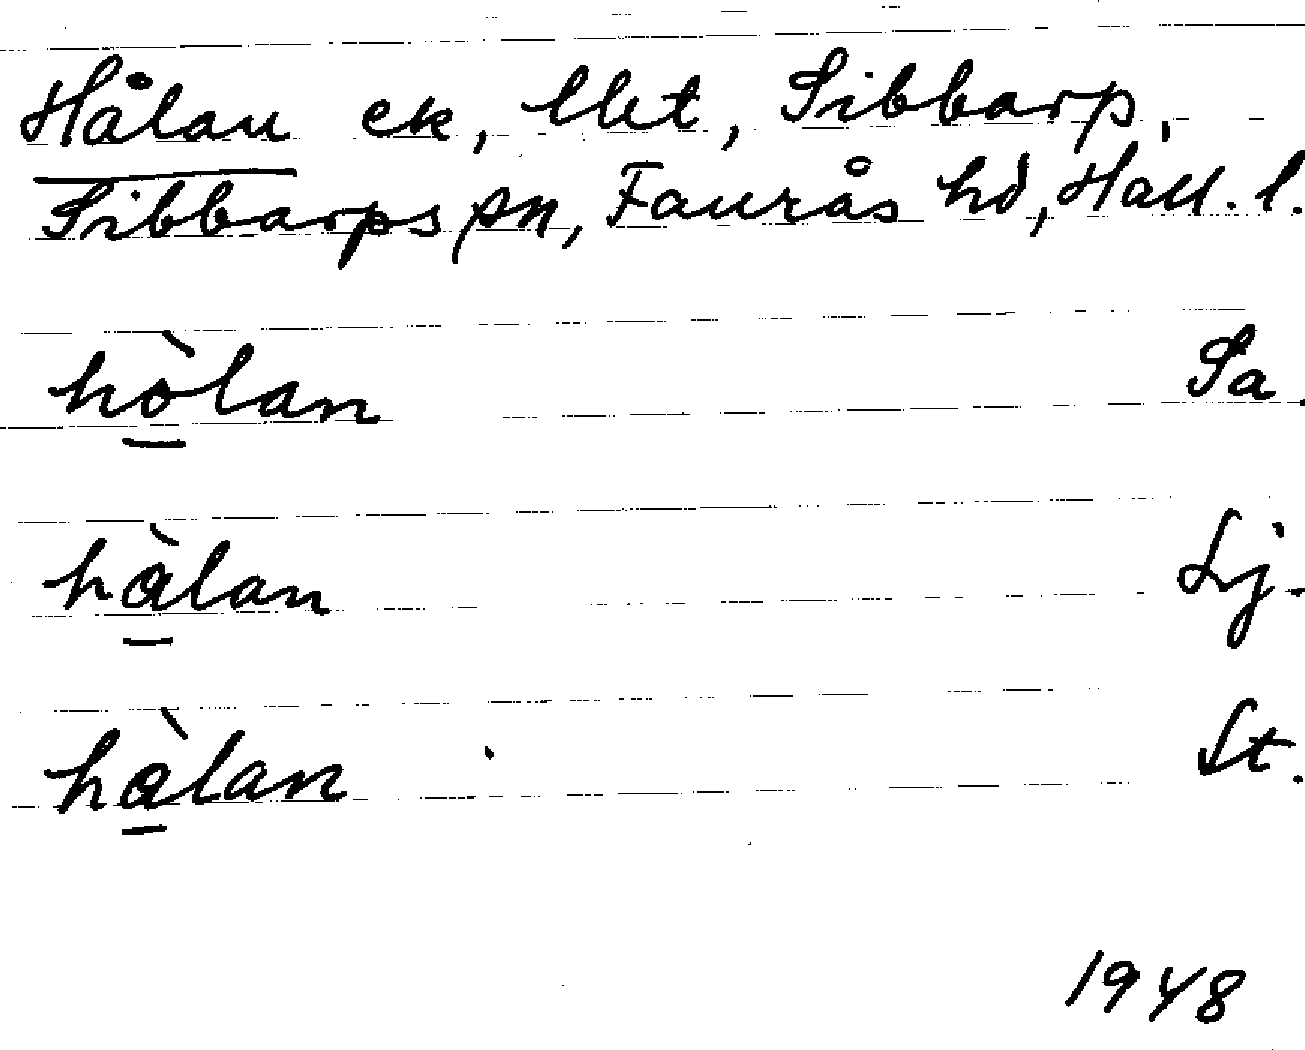 Hålan ek, Uet, Sibbarp,
Sibbarps sn, Faurås hd, Hall. l.
hò̱lan Sa.
hà̱lan Lj.
hà̱lan St.
1948